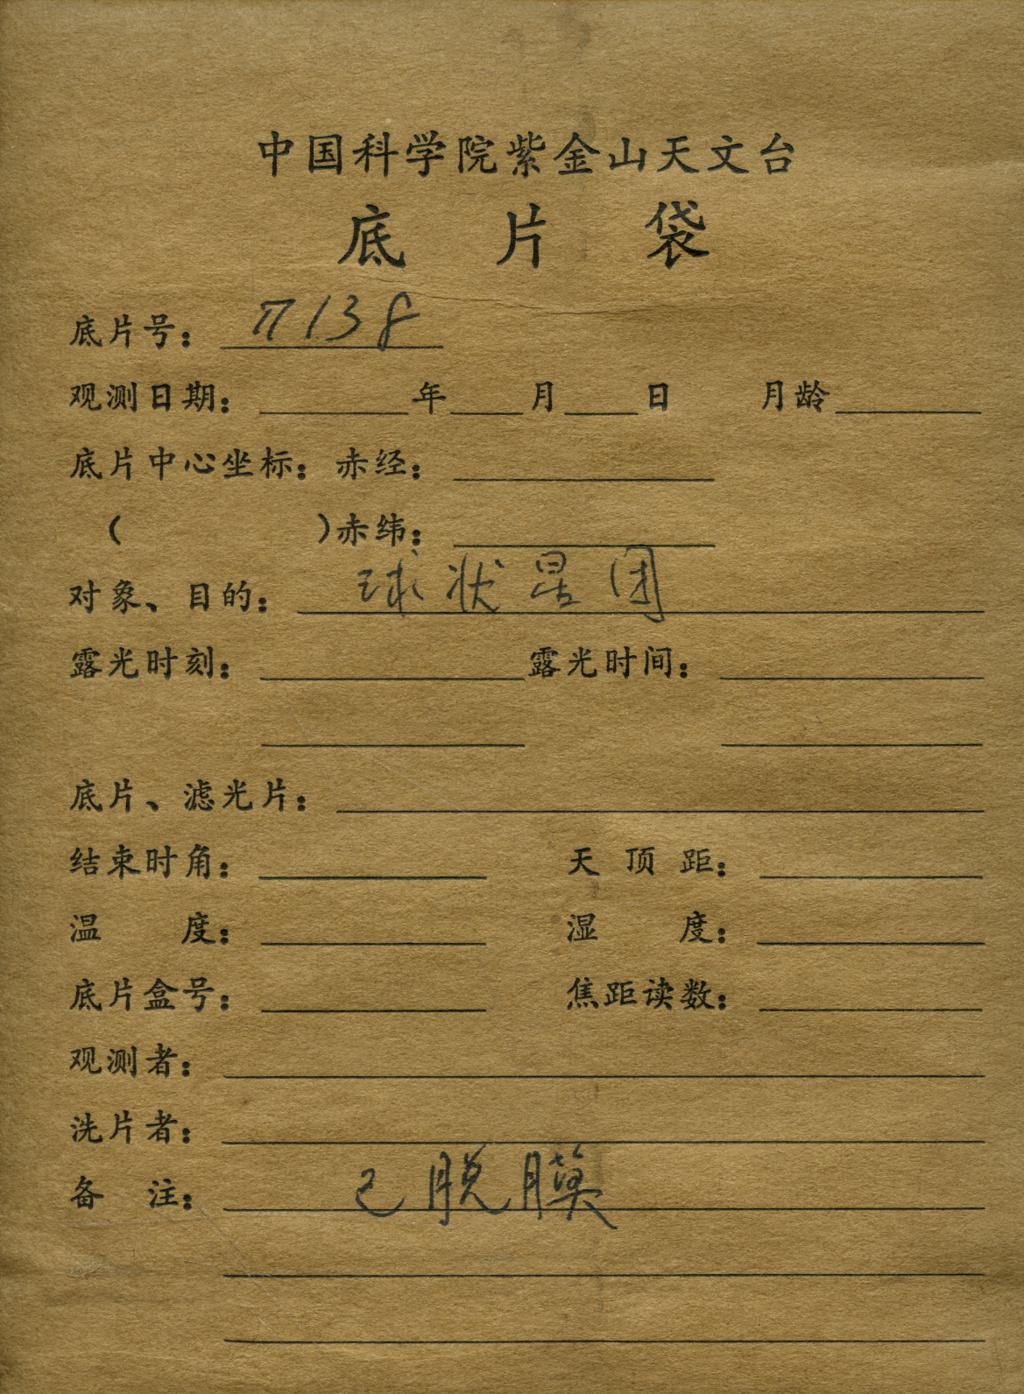 中国科学院紫金山天文台
底片袋
底片号：π138
观测日期：年月日 月龄
底片中心坐标：赤经：
( )赤纬：
对象、目的：球状星团
露光时刻： 露光时间：
底片、滤光片：
结束时角： 天顶距：
温度： 湿度：
底片盒号： 焦距读数：
观测者：
洗片者：
备注：已脱膜